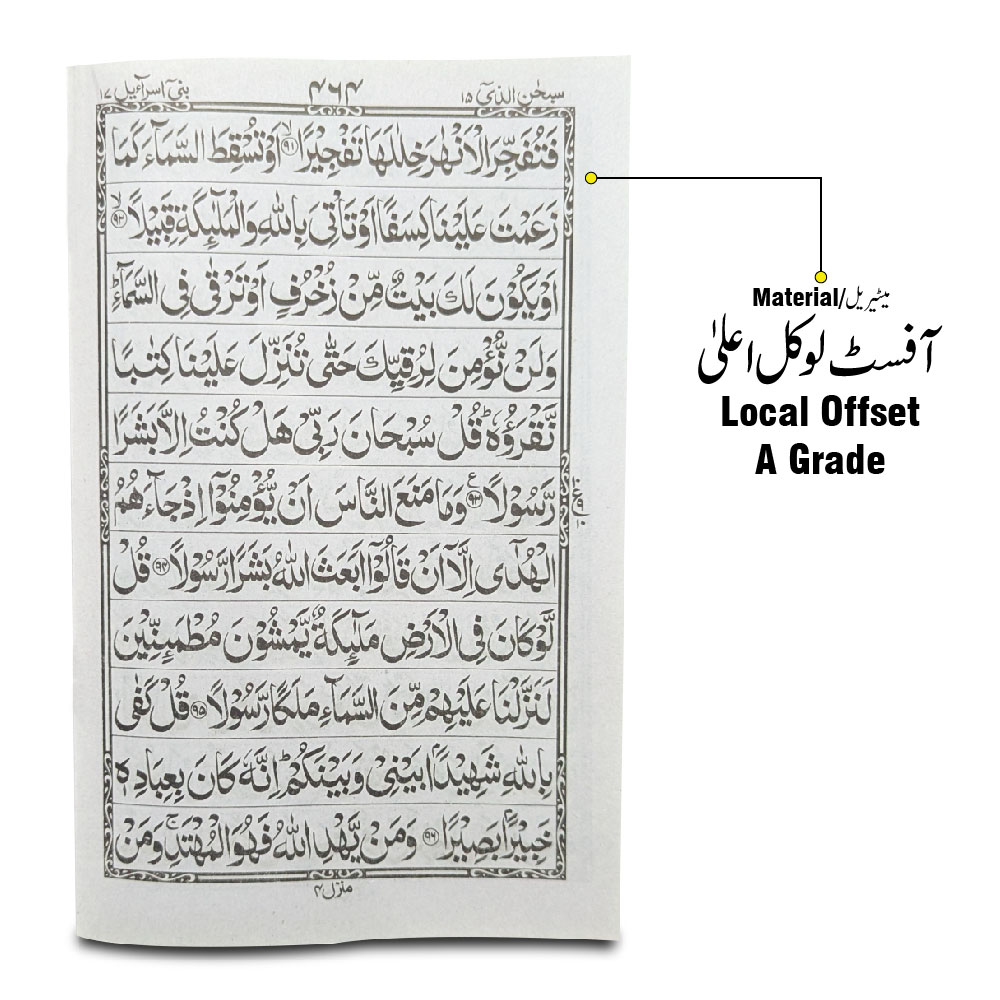 سبحٰن الذیٓ ۱۵ ۴۶۴ بنیٓ اسرآءیل ۱۷
فَتُفَجِّرَ الْاَنْهٰرَ خِلٰلَهَا تَفْجِیْرًا ﴿ۙ۹۱﴾ اَوْ تُسْقِطَ السَّمَآءَ كَمَا
زَعَمْتَ عَلَیْنَا كِسَفًا اَوْ تَاْتِیَ بِاللّٰهِ وَ الْمَلٰٓىِٕكَةِ قَبِیْلًا ﴿ۙ۹۲﴾
اَوْ یَكُوْنَ لَكَ بَیْتٌ مِّنْ زُخْرُفٍ اَوْ تَرْقٰی فِی السَّمَآءِ ؕ
وَ لَنْ نُّؤْمِنَ لِرُقِیِّكَ حَتّٰی تُنَزِّلَ عَلَیْنَا كِتٰبًا
نَّقْرَؤُهٗ ؕ قُلْ سُبْحَانَ رَبِّیْ هَلْ كُنْتُ اِلَّا بَشَرًا
رَّسُوْلًا ﴿۹۳﴾ ع وَ مَا مَنَعَ النَّاسَ اَنْ یُّؤْمِنُوْۤا اِذْ جَآءَهُمُ
الْهُدٰۤی اِلَّاۤ اَنْ قَالُوْۤا اَبَعَثَ اللّٰهُ بَشَرًا رَّسُوْلًا ﴿۹۴﴾ قُلْ
لَّوْ كَانَ فِی الْاَرْضِ مَلٰٓىِٕكَةٌ یَّمْشُوْنَ مُطْمَىِٕنِّیْنَ
لَنَزَّلْنَا عَلَیْهِمْ مِّنَ السَّمَآءِ مَلَكًا رَّسُوْلًا ﴿۹۵﴾ قُلْ كَفٰی
بِاللّٰهِ شَهِیْدًۢا بَیْنِیْ وَ بَیْنَكُمْ ؕ اِنَّهٗ كَانَ بِعِبَادِهٖ
خَبِیْرًۢا بَصِیْرًا ﴿۹۶﴾ وَ مَنْ یَّهْدِ اللّٰهُ فَهُوَ الْمُهْتَدِ ۚ وَ مَنْ
منزل ۴
Material/میٹیریل
آفسٹ لوکل اعلیٰ
Local Offset
A Grade